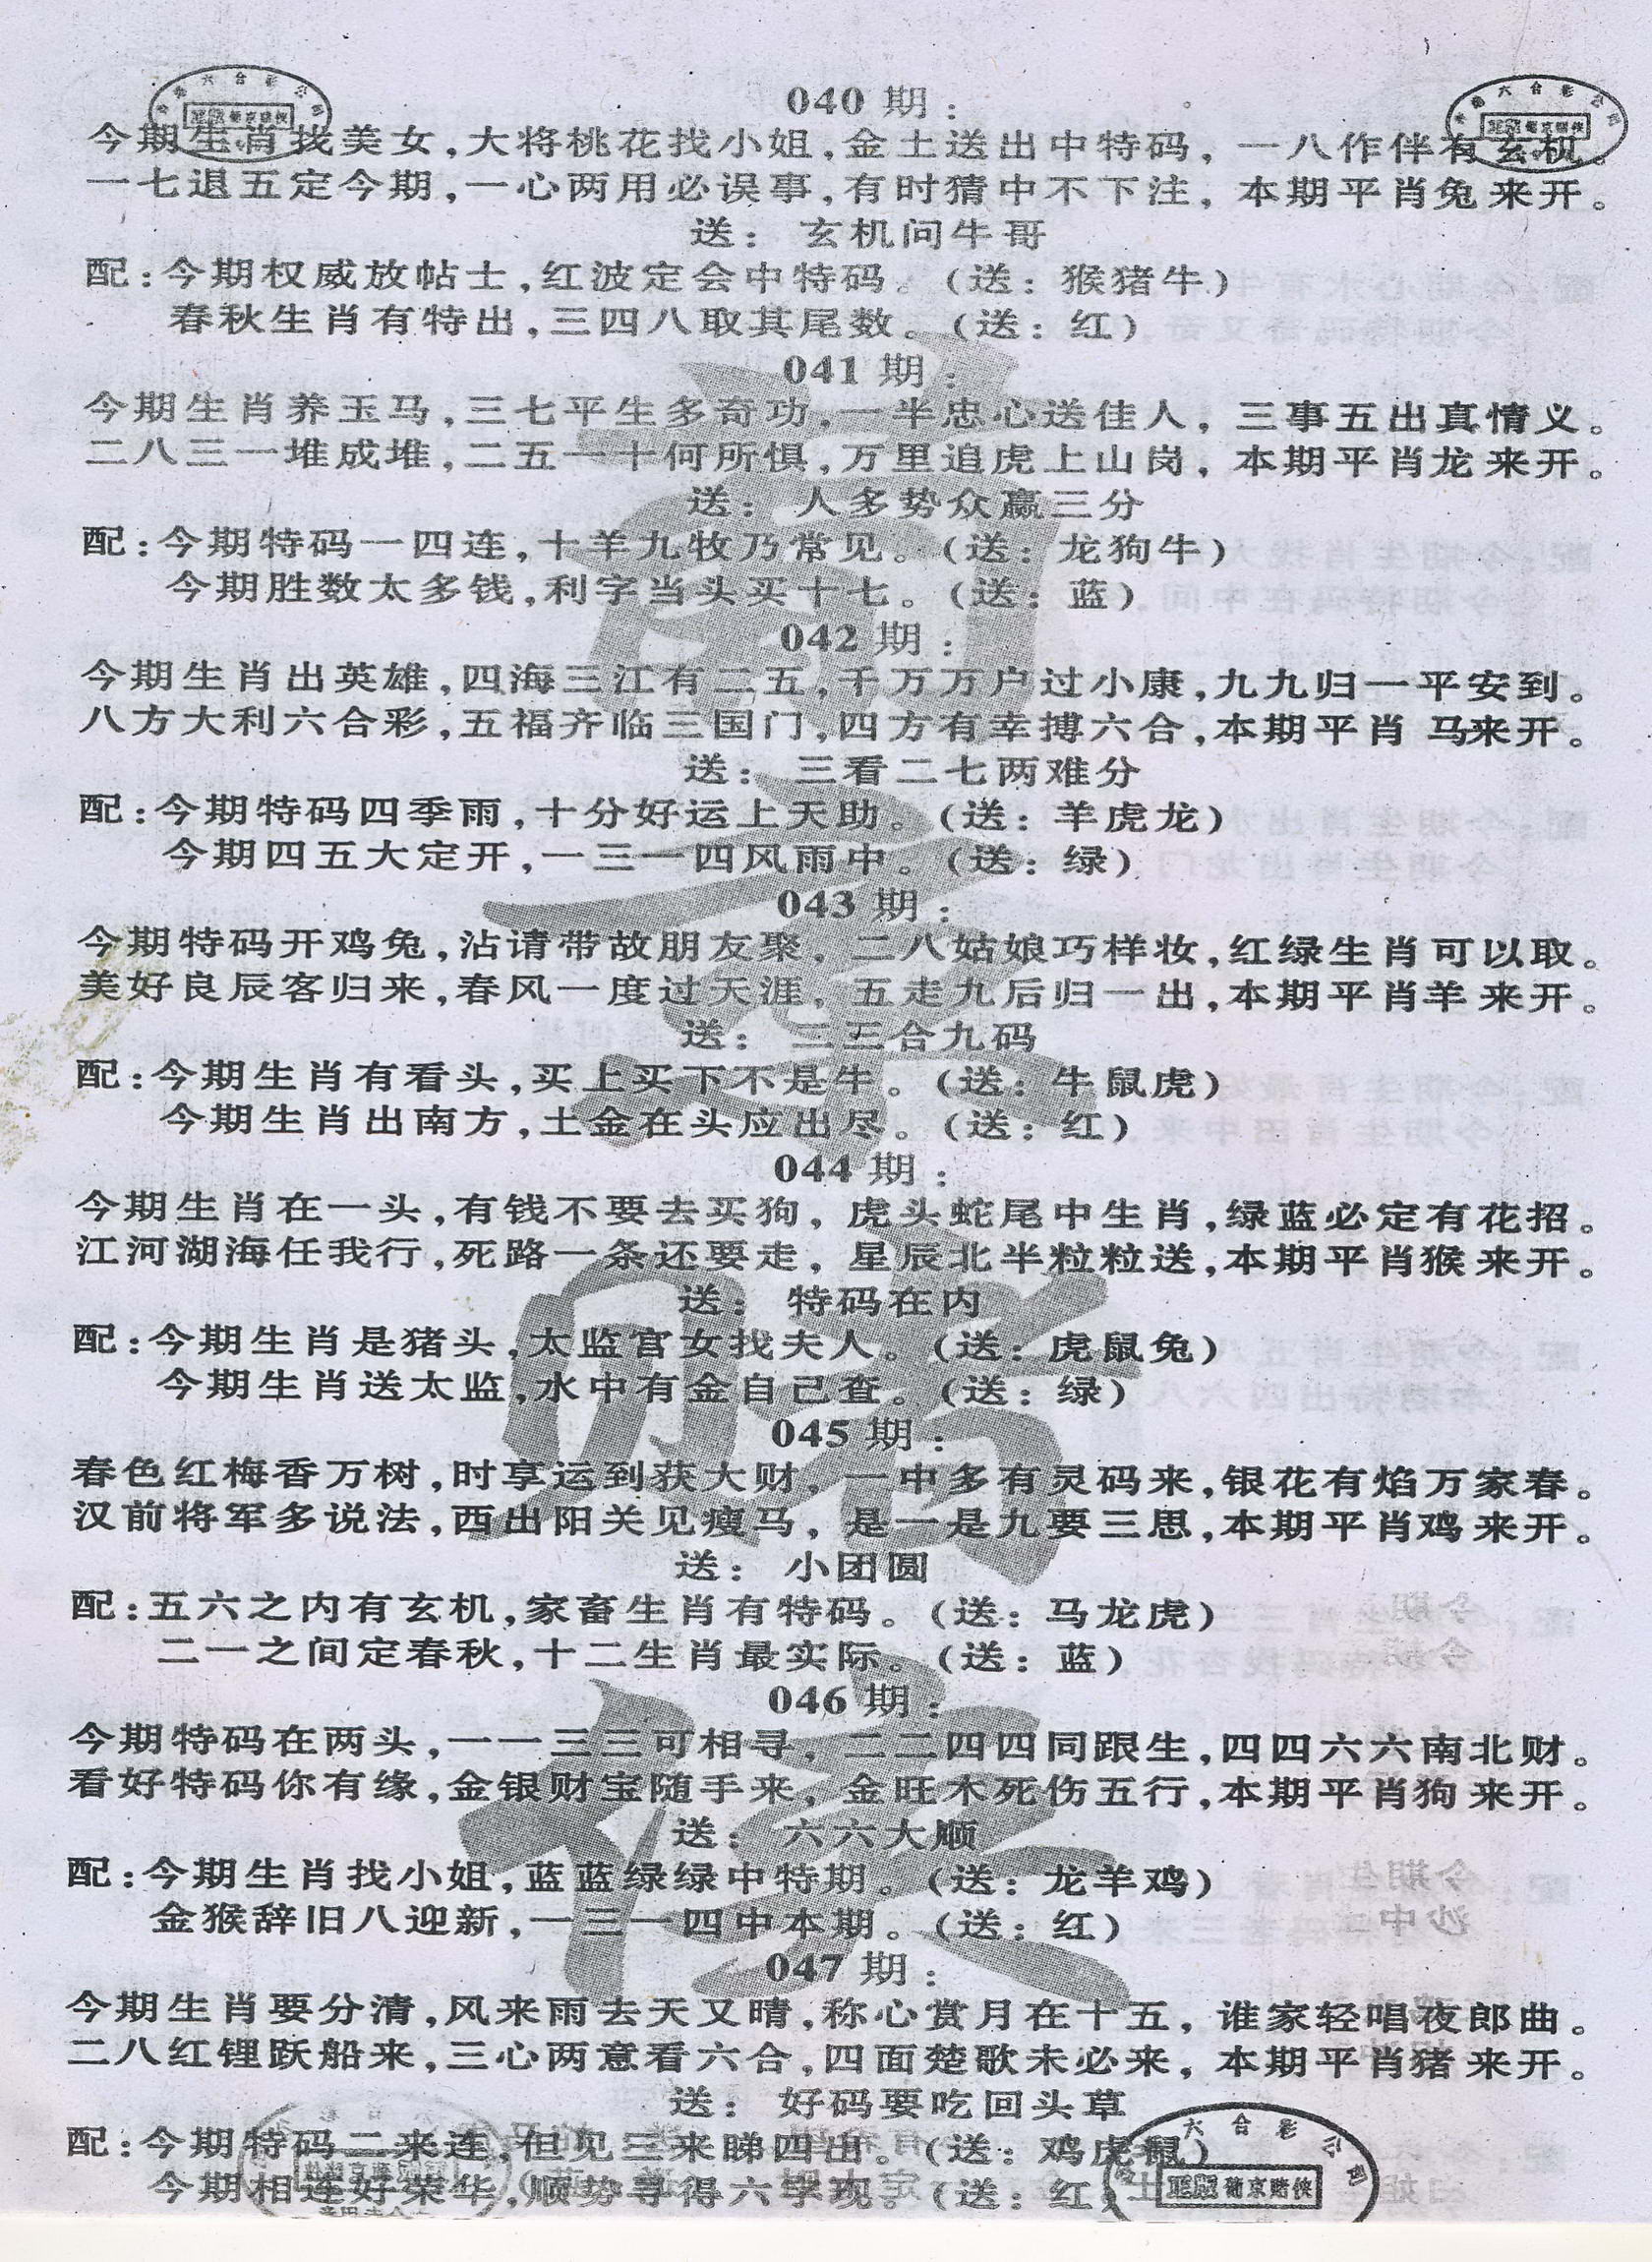 040期：
今期生肖找美女,大将桃花找小姐,金土送出中特码,一八作伴有玄机。
一七退五定今期,一心两用必误事,有时猜中不下注,本期平肖兔来开。
送：玄机问牛哥
配:今期权威放帖士,红波定会中特码。(送:猴猪牛)
春秋生肖有特出,三四八取其尾数。(送:红)
041期：
今期生肖养玉马,三七平生多奇功,一半忠心送佳人,三事五出真情义。
二八三一堆成堆,二五一十何所惧,万里追虎上山岗,本期平肖龙来开。
送：人多势众赢三分
配:今期特码一四连,十羊九牧乃常见。(送:龙狗牛)
今期胜数太多钱,利字当头买十七。(送:蓝)
042期：
今期生肖出英雄,四海三江有二五,千万万户过小康,九九归一平安到。
八方大利六合彩,五福齐临三国门,四方有幸搏六合,本期平肖马来开。
送：三看二七两难分
配:今期特码四季雨,十分好运上天助。(送:羊虎龙)
今期四五大定开,一三一四风雨中。(送:绿)
043期：
今期特码开鸡兔,沾请带故朋友聚,二八姑娘巧样妆,红绿生肖可以取。
美好良辰客归来,春风一度过天涯,五走九后归一出,本期平肖羊来开。
送：二三合九码
配:今期生肖有看头,买上买下不是牛。(送:牛鼠虎)
今期生肖出南方,土金在头应出尽。(送:红)
044期：
今期生肖在一头,有钱不要去买狗,虎头蛇尾中生肖,绿蓝必定有花招。
江河湖海任我行,死路一条还要走,星辰北半粒粒送,本期平肖猴来开。
送：特码在内
配:今期生肖是猪头,太监宫女找夫人。(送:虎鼠兔)
今期生肖送太监,水中有金自己查。(送:绿)
045期：
春色红梅香万树,时享运到获大财,一中多有灵码来,银花有焰万家春。
汉前将军多说法,西出阳关见瘦马,是一是九要三思,本期平肖鸡来开。
送：小团圆
配:五六之内有玄机,家畜生肖有特码。(送:马龙虎)
二一之间定春秋,十二生肖最实际。(送:蓝)
046期：
今期特码在两头,一一三三可相寻,二二四四同跟生,四四六六南北财。
看好特码你有缘,金银财宝随手来,金旺木死伤五行,本期平肖狗来开。
送：六六大顺
配:今期生肖找小姐,蓝蓝绿绿中特期。(送:龙羊鸡)
金猴辞旧八迎新,一三一四中本期。(送:红)
047期：
今期生肖要分清,风来雨去天又晴,称心赏月在十五,谁家轻唱夜郎曲。
二八红锂跃船来,三心两意看六合,四面楚歌未必来,本期平肖猪来开。
送：好码要吃回头草
配:今期特码二来连,但见三来睇四出。(送:鸡虎鼠)
今期相连好荣华,顺势寻得六字现。(送:红)
葡京赌侠